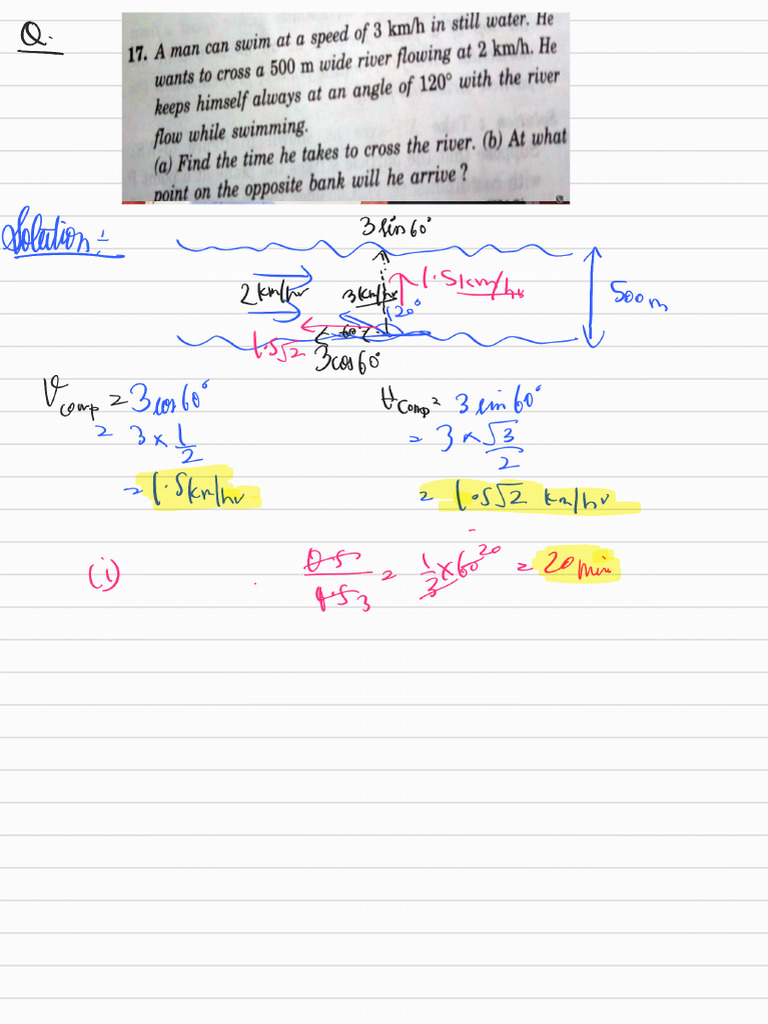 Q.
17. A man can swim at a speed of 3 km/h in still water. He
wants to cross a 500 m wide river flowing at 2 km/h. He
keeps himself always at an angle of 120° with the river
flow while swimming.
(a) Find the time he takes to cross the river. (b) At what
point on the opposite bank will he arrive ?
Solution :-
3 sin 60°
2 km/hr 3 km/hr 1.5 km/hr
120° 500 m
1.5√2 60°
3 cos 60°
V comp = 3 cos 60°
= 3 × 1/2
= 1.5 km/hr
H comp = 3 sin 60°
= 3 × √3/2
= 1.5√2 km/hr
(i) 0.5/1.5 3 = 1/3 × 60 20 = 20 min